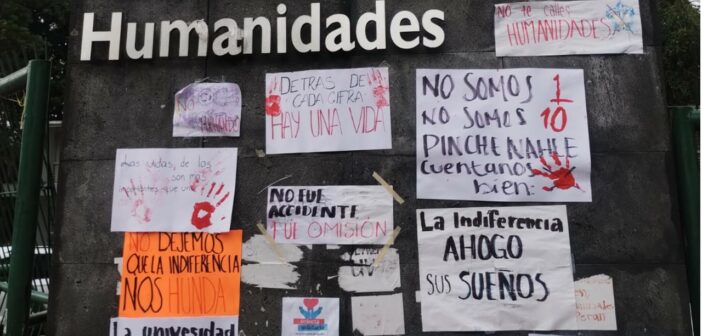 Humanidades
No te calles
HUMANIDADES
DETRAS DE
CADA CIFRA
HAY UNA VIDA
NO SOMOS 1
NO SOMOS 10
PINCHE NAHLE
Cuentanos
bien:
Las vidas, de las
son mas
que un
NO FUE
ACCIDENTE
FUE OMISIÓN
La Indiferencia
AHOGO
SUS SUEÑOS
NO DEJEMOS
QUE LA INDIFERENCIA
NOS HUNDA
UV
La univesidad